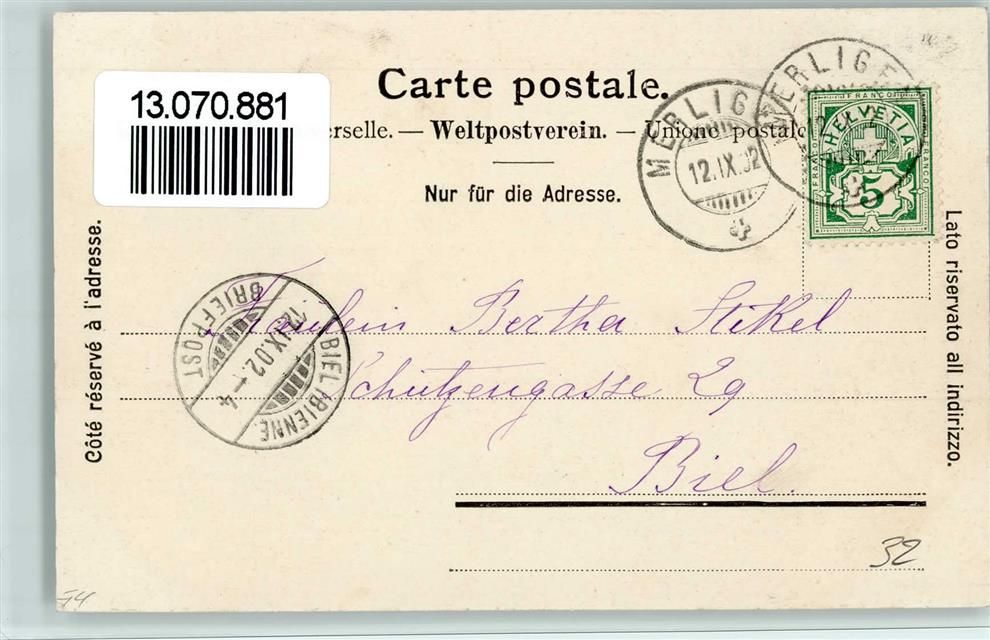 Carte postale.
13.070.881
erselle. — Weltpostverein. — Unione postale
Nur für die Adresse.
MERLIGEN
12.IX.02
MERLIGEN
12
FRANCO
HELVETIA
FRANCO
FRANCO
5
Côté réservé à l'adresse.
Lato riservato all indirizzo.
BRIEFPOST
12.IX.02-4
BIEL/BIENNE
Fräulein Bertha Stikel
Schützengasse 29
Biel.
32